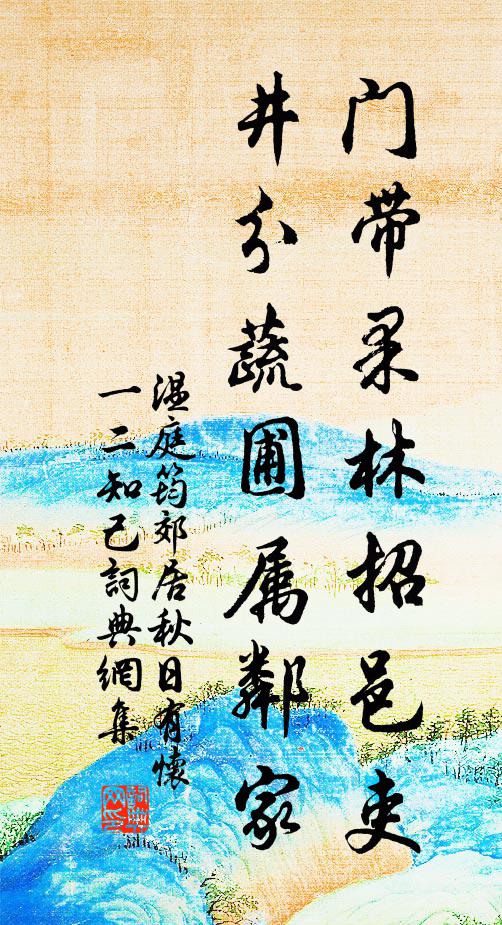 门带果林招邑吏
井分蔬圃属鄰家
温庭筠郊居秋日有懷
一二知己詞典網集